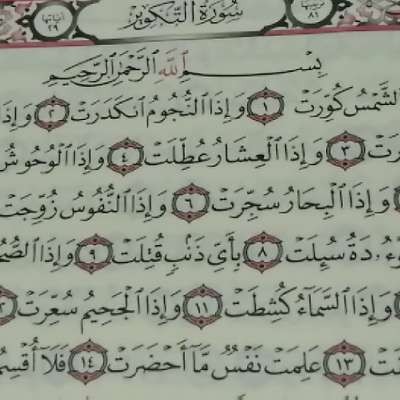 ترتيبها ٨١ سُورَةُ التَّكْوِيرِ آياتها ٢٩
بِسْمِ ٱللَّهِ ٱلرَّحْمَٰنِ ٱلرَّحِيمِ
ٱلشَّمْسُ كُوِّرَتْ ١ وَإِذَا ٱلنُّجُومُ ٱنكَدَرَتْ ٢ وَإِذَا
رَتْ ٣ وَإِذَا ٱلْعِشَارُ عُطِّلَتْ ٤ وَإِذَا ٱلْوُحُوشُ
وَإِذَا ٱلْبِحَارُ سُجِّرَتْ ٦ وَإِذَا ٱلنُّفُوسُ زُوِّجَتْ
ءُۥدَةُ سُئِلَتْ ٨ بِأَىِّ ذَنۢبٍ قُتِلَتْ ٩ وَإِذَا ٱلصُّ
وَإِذَا ٱلسَّمَآءُ كُشِطَتْ ١١ وَإِذَا ٱلْجَحِيمُ سُعِّرَتْ
تْ ١٣ عَلِمَتْ نَفْسٌ مَّآ أَحْضَرَتْ ١٤ فَلَآ أُقْسِمُ